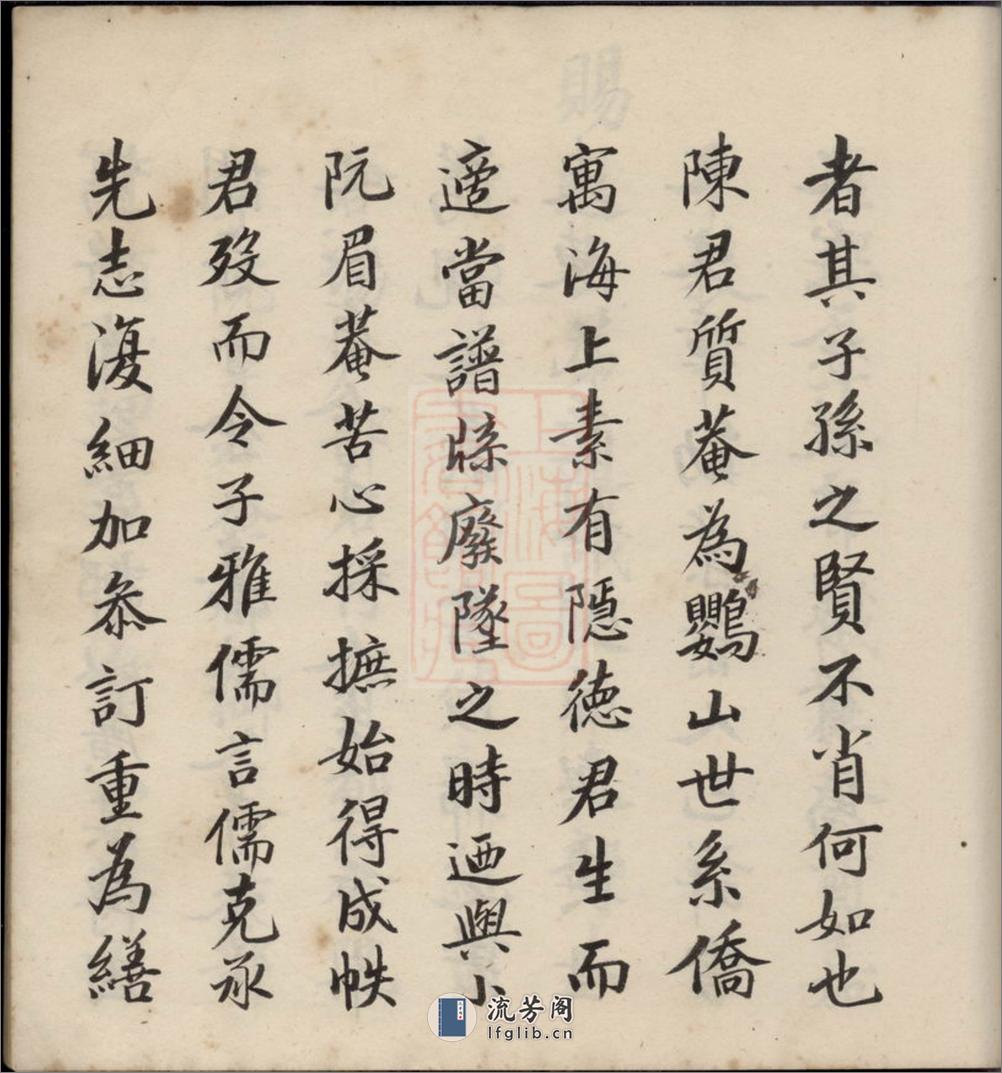 者其子孫之賢不肖何如也
陳君質菴為鸚山世系僑
寓海上素有隱德君生而
適當譜牒廢墜之時迺與小
阮眉菴苦心採摭始得成帙
君歿而令子雅儒言儒克承
先志復細加叅訂重為繕
賜
上海圖書館藏
流芳阁
lfglib.cn